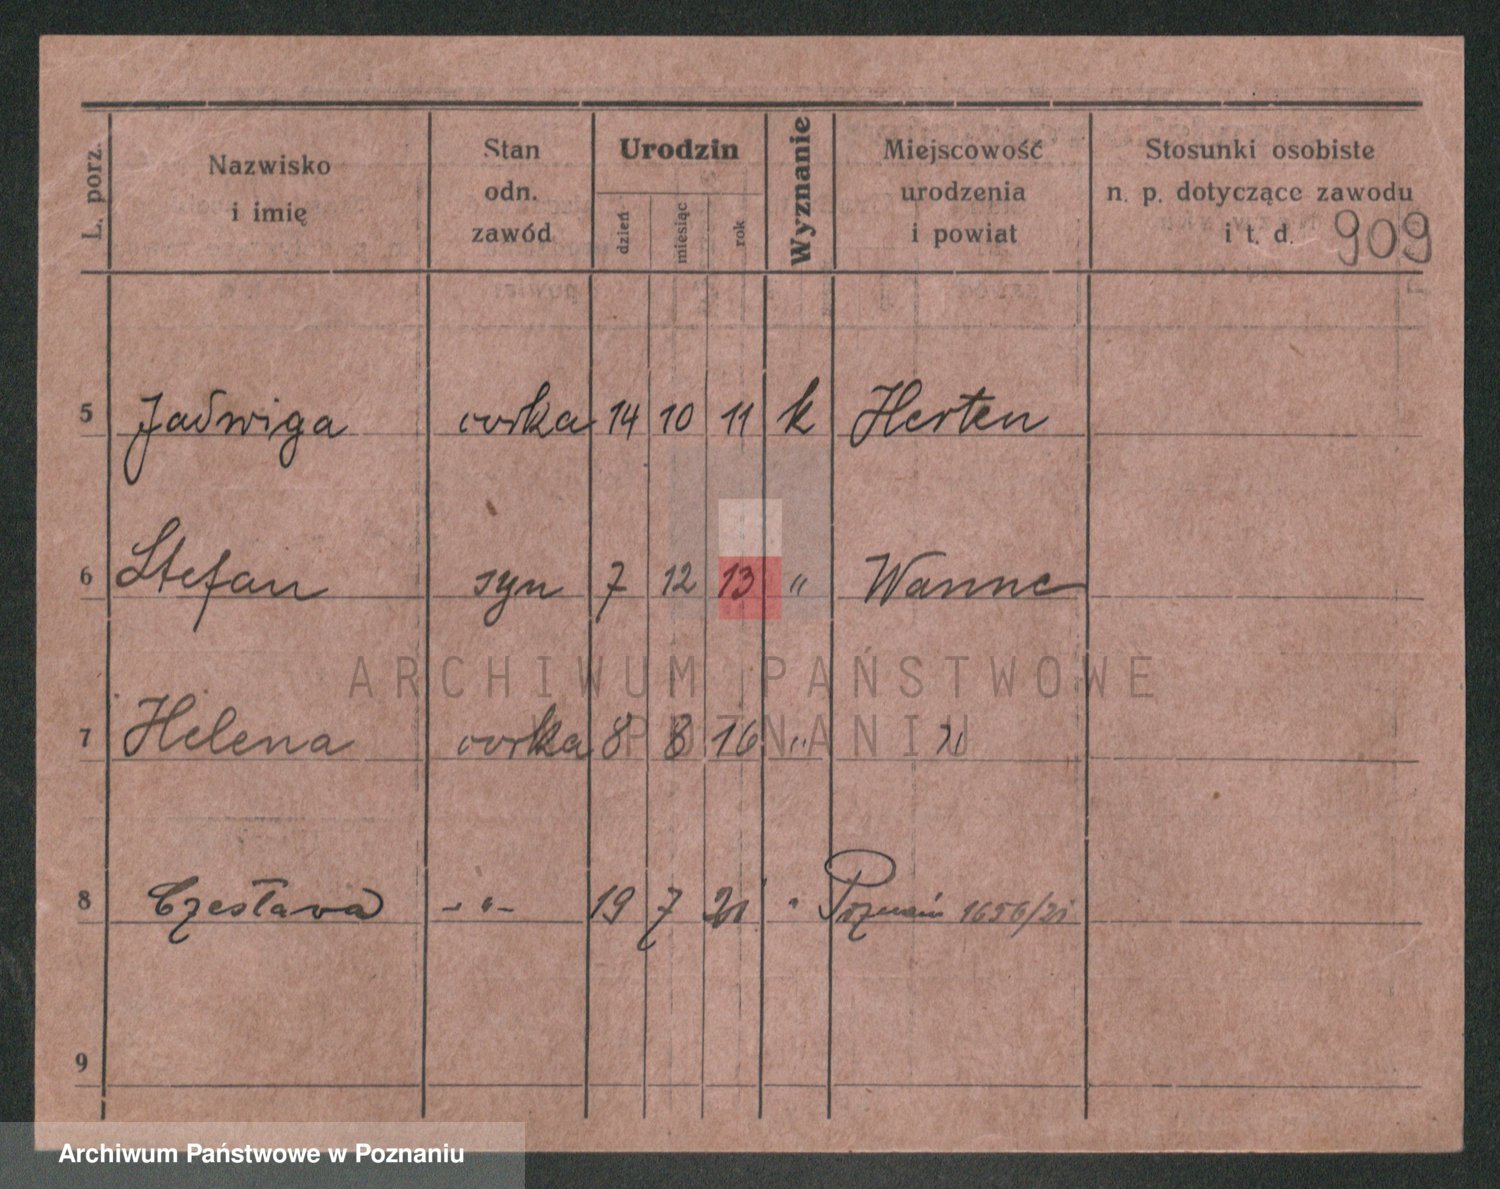 L. porz.
Nazwisko
i imię
Stan
odn.
zawód
Urodzin
dzień
miesiąc
rok
Wyznanie
Miejscowość
urodzenia
i powiat
Stosunki osobiste
n. p. dotyczące zawodu
i t. d.
909
5 Jadwiga córka 14 10 11 k Herten
6 Stefan syn 7 12 13 " Wanne
ARCHIWUM PAŃSTWOWE
W POZNANIU
7 Helena córka 8 8 16 " "
8 Czesława -"- 19 7 21 " Poznań 1656/21
9
Archiwum Państwowe w Poznaniu